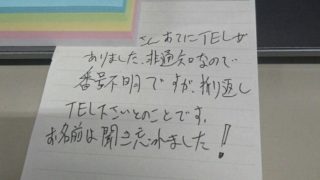 さんあてにTELが
ありました、非通知なので
番号不明ですが、折り返し
TEL下さいとのことです。
お名前は聞き忘れました!